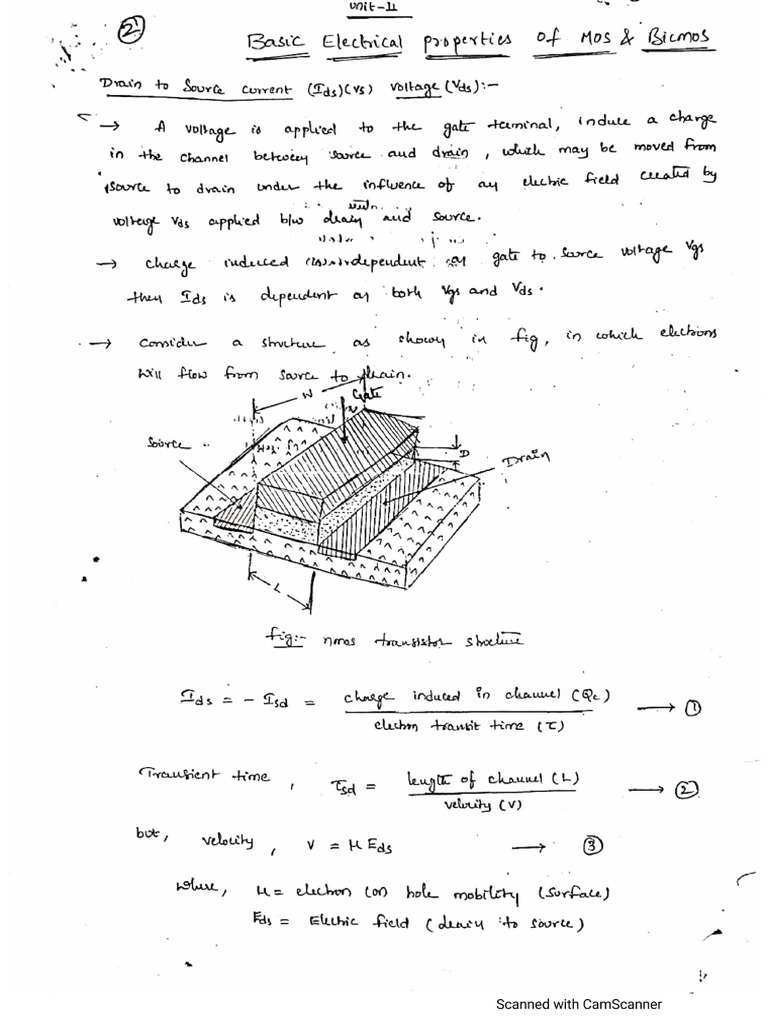 Unit-II
2
Basic Electrical properties of MOS & Bicmos
Drain to Source current (Ids) (vs) voltage (Vds):-
→ A voltage is applied to the gate terminal, induce a charge
in the channel between source and drain, which may be moved from
source to drain under the influence of an electric field created by
voltage Vds applied b/w drain and source.
→ charge induced is dependent on gate to source voltage Vgs
then Ids is dependent on both Vgs and Vds.
→ Consider a structure as shown in fig, in which electrons
will flow from source to drain.
W
Gate
Source
D
Drain
L
fig:- nmos transistor structure
Ids = - Isd = charge induced in channel (Qc) / electron transit time (τ) → ①
Transient time, τsd = length of channel (L) / velocity (V) → ②
but, velocity, v = μ Eds → ③
where, μ = electron (or) hole mobility (surface)
Eds = Electric field (drain to source)
Scanned with CamScanner